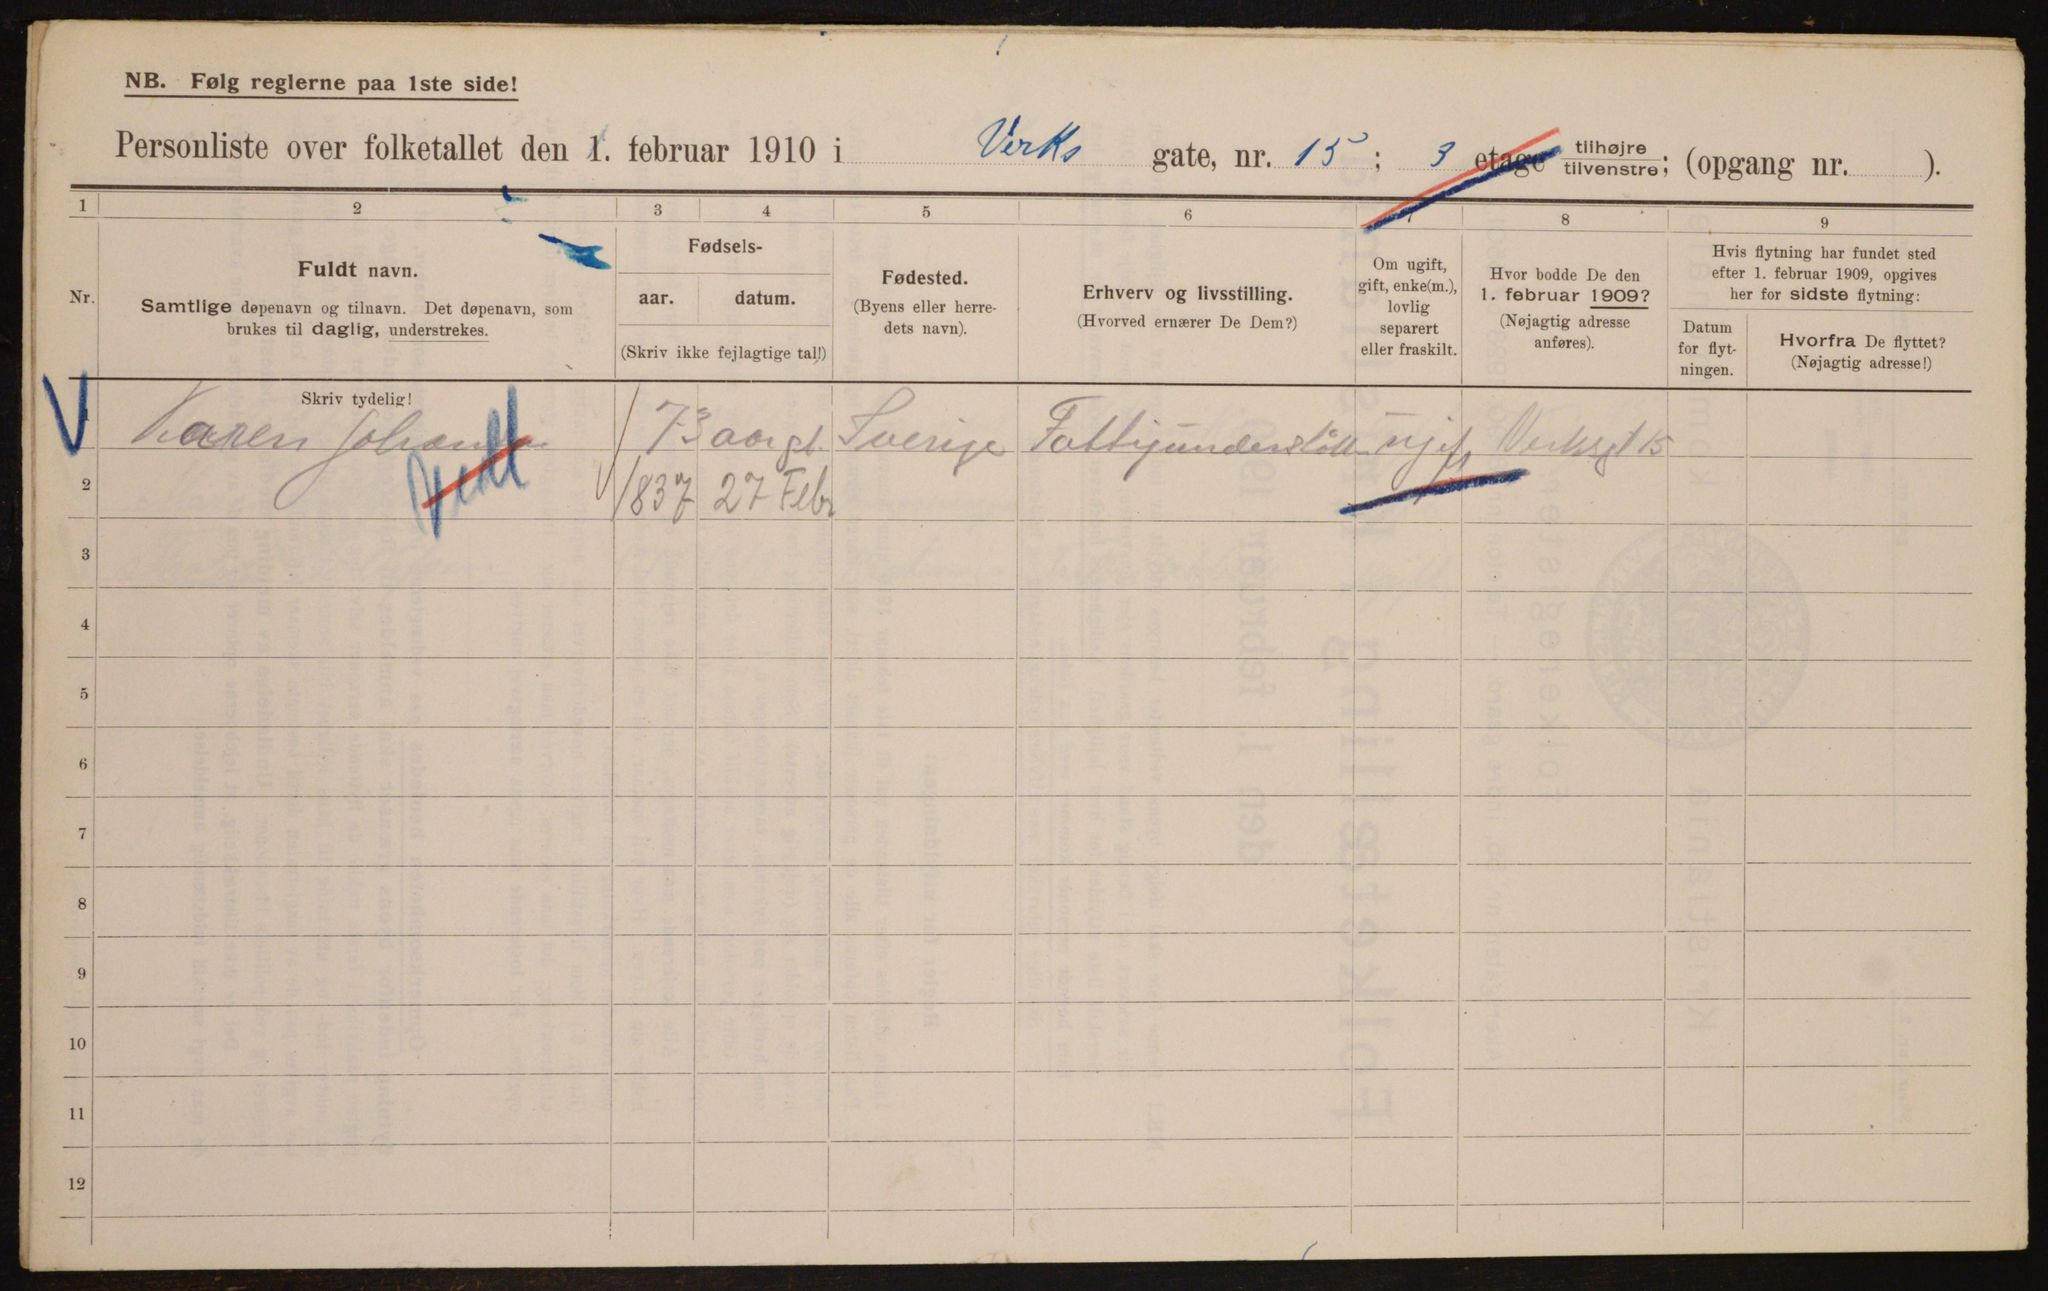 NB. Følg reglerne paa 1ste side!
Personliste over folketallet den 1. februar 1910 i Verks gate, nr. 15; 3 etage tilhøjre tilvenstre; (opgang nr. ).
1 2 3 4 5 6 7 8 9
Nr.
Fuldt navn.
Samtlige døpenavn og tilnavn. Det døpenavn, som
brukes til daglig, understrekes.
Fødsels-
aar. datum.
(Skriv ikke fejlagtige tal!)
Fødested.
(Byens eller herre-
dets navn).
Erhverv og livsstilling.
(Hvorved ernærer De Dem?)
Om ugift,
gift, enke(m.),
lovlig
separert
eller fraskilt.
Hvor bodde De den
1. februar 1909?
(Nøjagtig adresse
anføres).
Hvis flytning har fundet sted
efter 1. februar 1909, opgives
her for sidste flytning:
Datum
for flyt-
ningen.
Hvorfra De flyttet?
(Nøjagtig adresse!)
Skriv tydelig!
1 Karen 73 aar gl. Sverige Fattigunderstött ugift Verksgt 15
2 1837 27 Febr
3
4
5
6
7
8
9
10
11
12